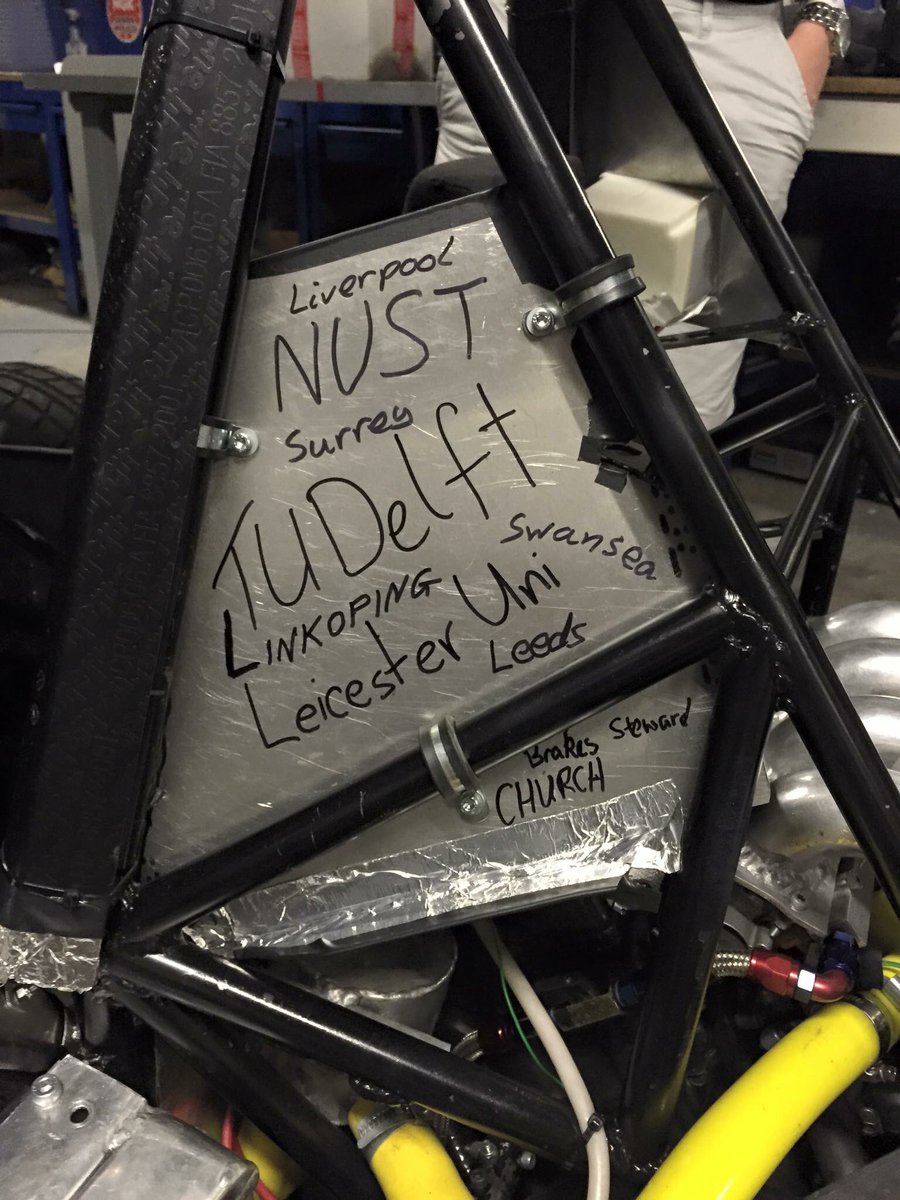 Liverpool
NUST
Surrey
TUDelft
Swansea
LINKOPING
Leicester Uni
Leeds
Brakes Steward
CHURCH
FIA 8857 2001